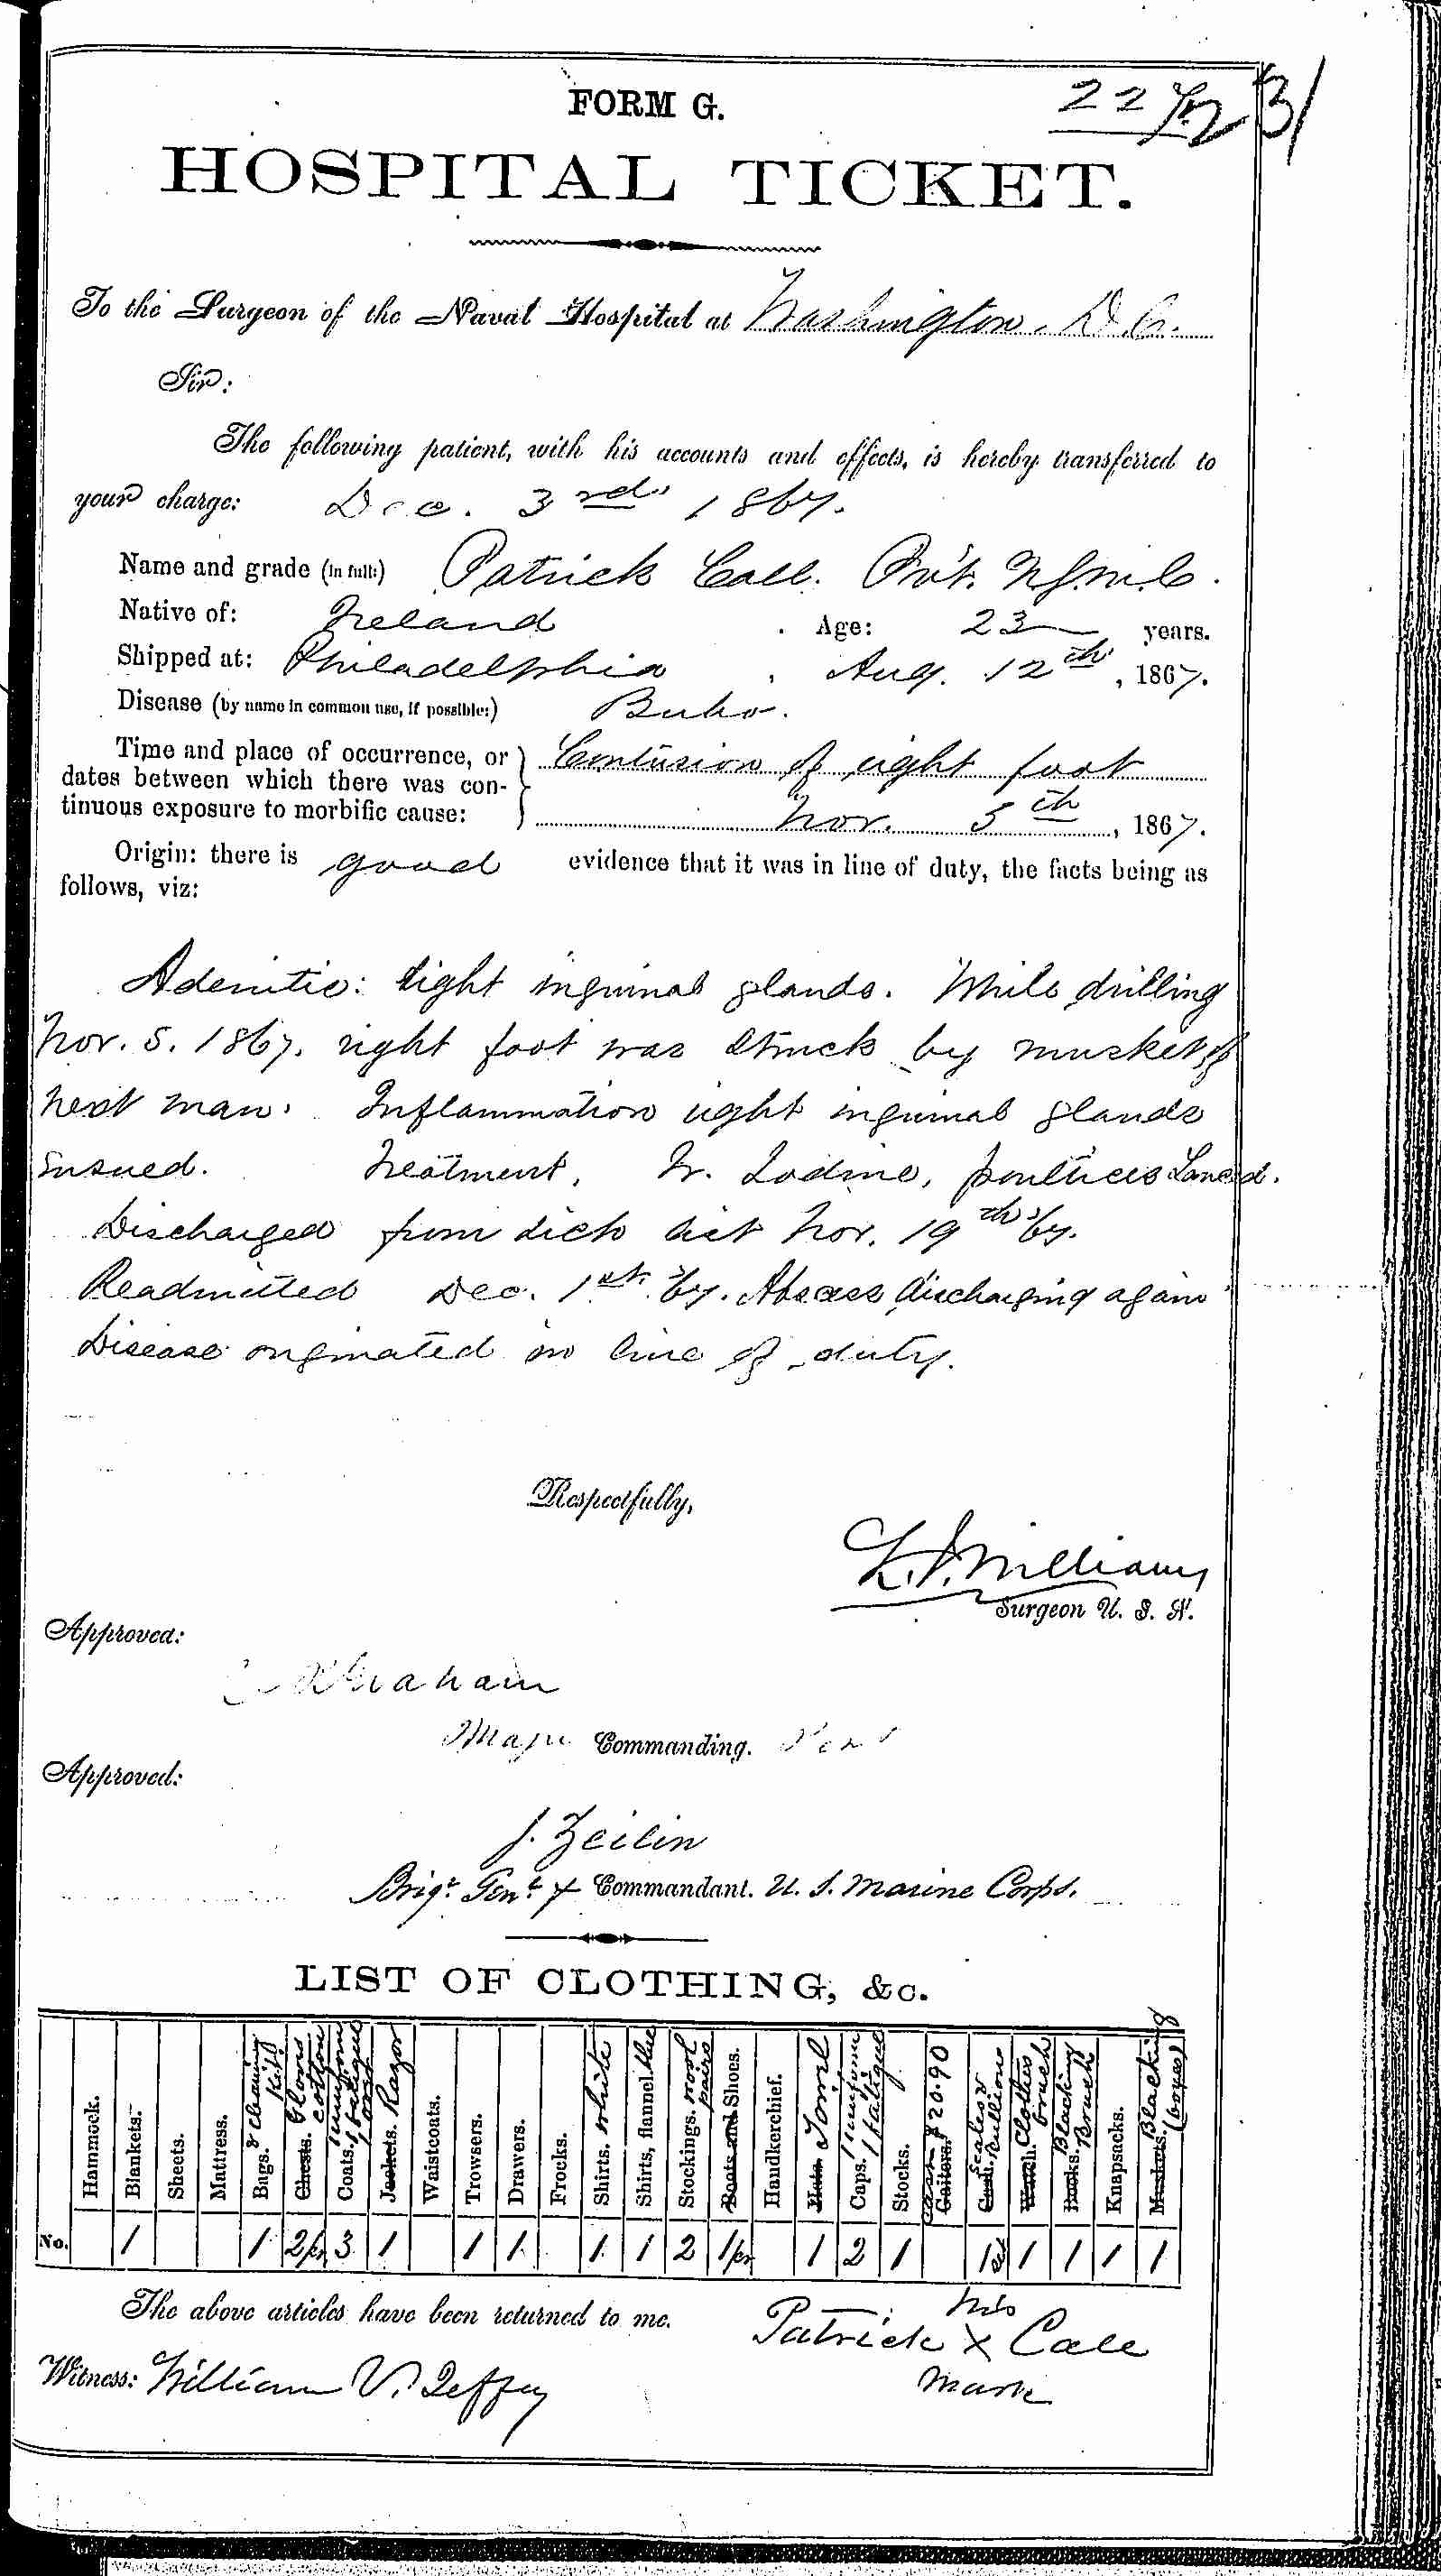 FORM G.
31
HOSPITAL TICKET.
To the Surgeon of the Naval Hospital at Washington, D.C.
Sir:
The following patient, with his accounts and effects, is hereby transferred to
your charge: Dec. 3rd. 1867.
Name and grade (in full:) Patrick Call. Priv't. U.S.M.C.
Native of: Ireland. Age: 23 years.
Shipped at: Philadelphia, Aug. 12th, 1867.
Disease (by name in common use, if possible:) Bubo.
Time and place of occurrence, or Contusion of right foot
dates between which there was con-
tinuous exposure to morbific cause: Nov. 5th, 1867.
Origin: there is good evidence that it was in line of duty, the facts being as
follows, viz:
Adenitis: right inguinal glands. While drilling
Nov. 5. 1867. right foot was struck by musket of
next man. Inflammation right inguinal glands
ensued. Treatment, Tr. Iodine, poultices Lanced.
Discharged from sick list Nov. 19th '67.
Readmitted Dec. 1st. '67. Abscess discharging again
Disease originated in line of duty.
Respectfully,
Williams
Surgeon U. S. N.
Approved:
Graham
Major Commanding. Post
Approved:
J. Zeilin
Brigr. Genl. & Commandant. U. S. Marine Corps.
LIST OF CLOTHING, &c.
Hammock.
Blankets.
Sheets.
Mattress.
Bags. & cleaning Kit
Chests. Gloves cotton
Coats. 1 uniform 1 fatigue 1 over
Jackets. Razor
Waistcoats.
Trowsers.
Drawers.
Frocks.
Shirts. white
Shirts, flannel. blue
Stockings. wool pairs
Boots and Shoes.
Handkerchief.
Hats. Towel
Caps. 1 uniform 1 fatigue
Stocks.
Gaiters. Cash $20.90
Scales & Bullions
Watch. Clothes brush
Books. Blacking Brush
Knapsacks.
Muskets. Blacking (boxes) 8
No. 1 1 2pr 3 1 1 1 1 1 2 1pr 1 2 1 1set 1 1 1 1
The above articles have been returned to me. Patrick his X Call
mark
Witness: William V. Jeffey